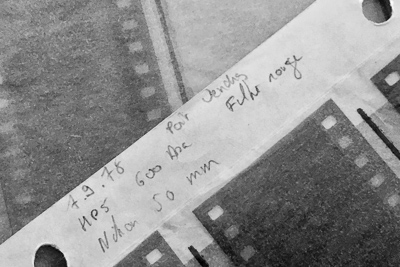 7.9.78 Par Vendres
HP5 600 Asa Filtre rouge
Nikon 50 mm